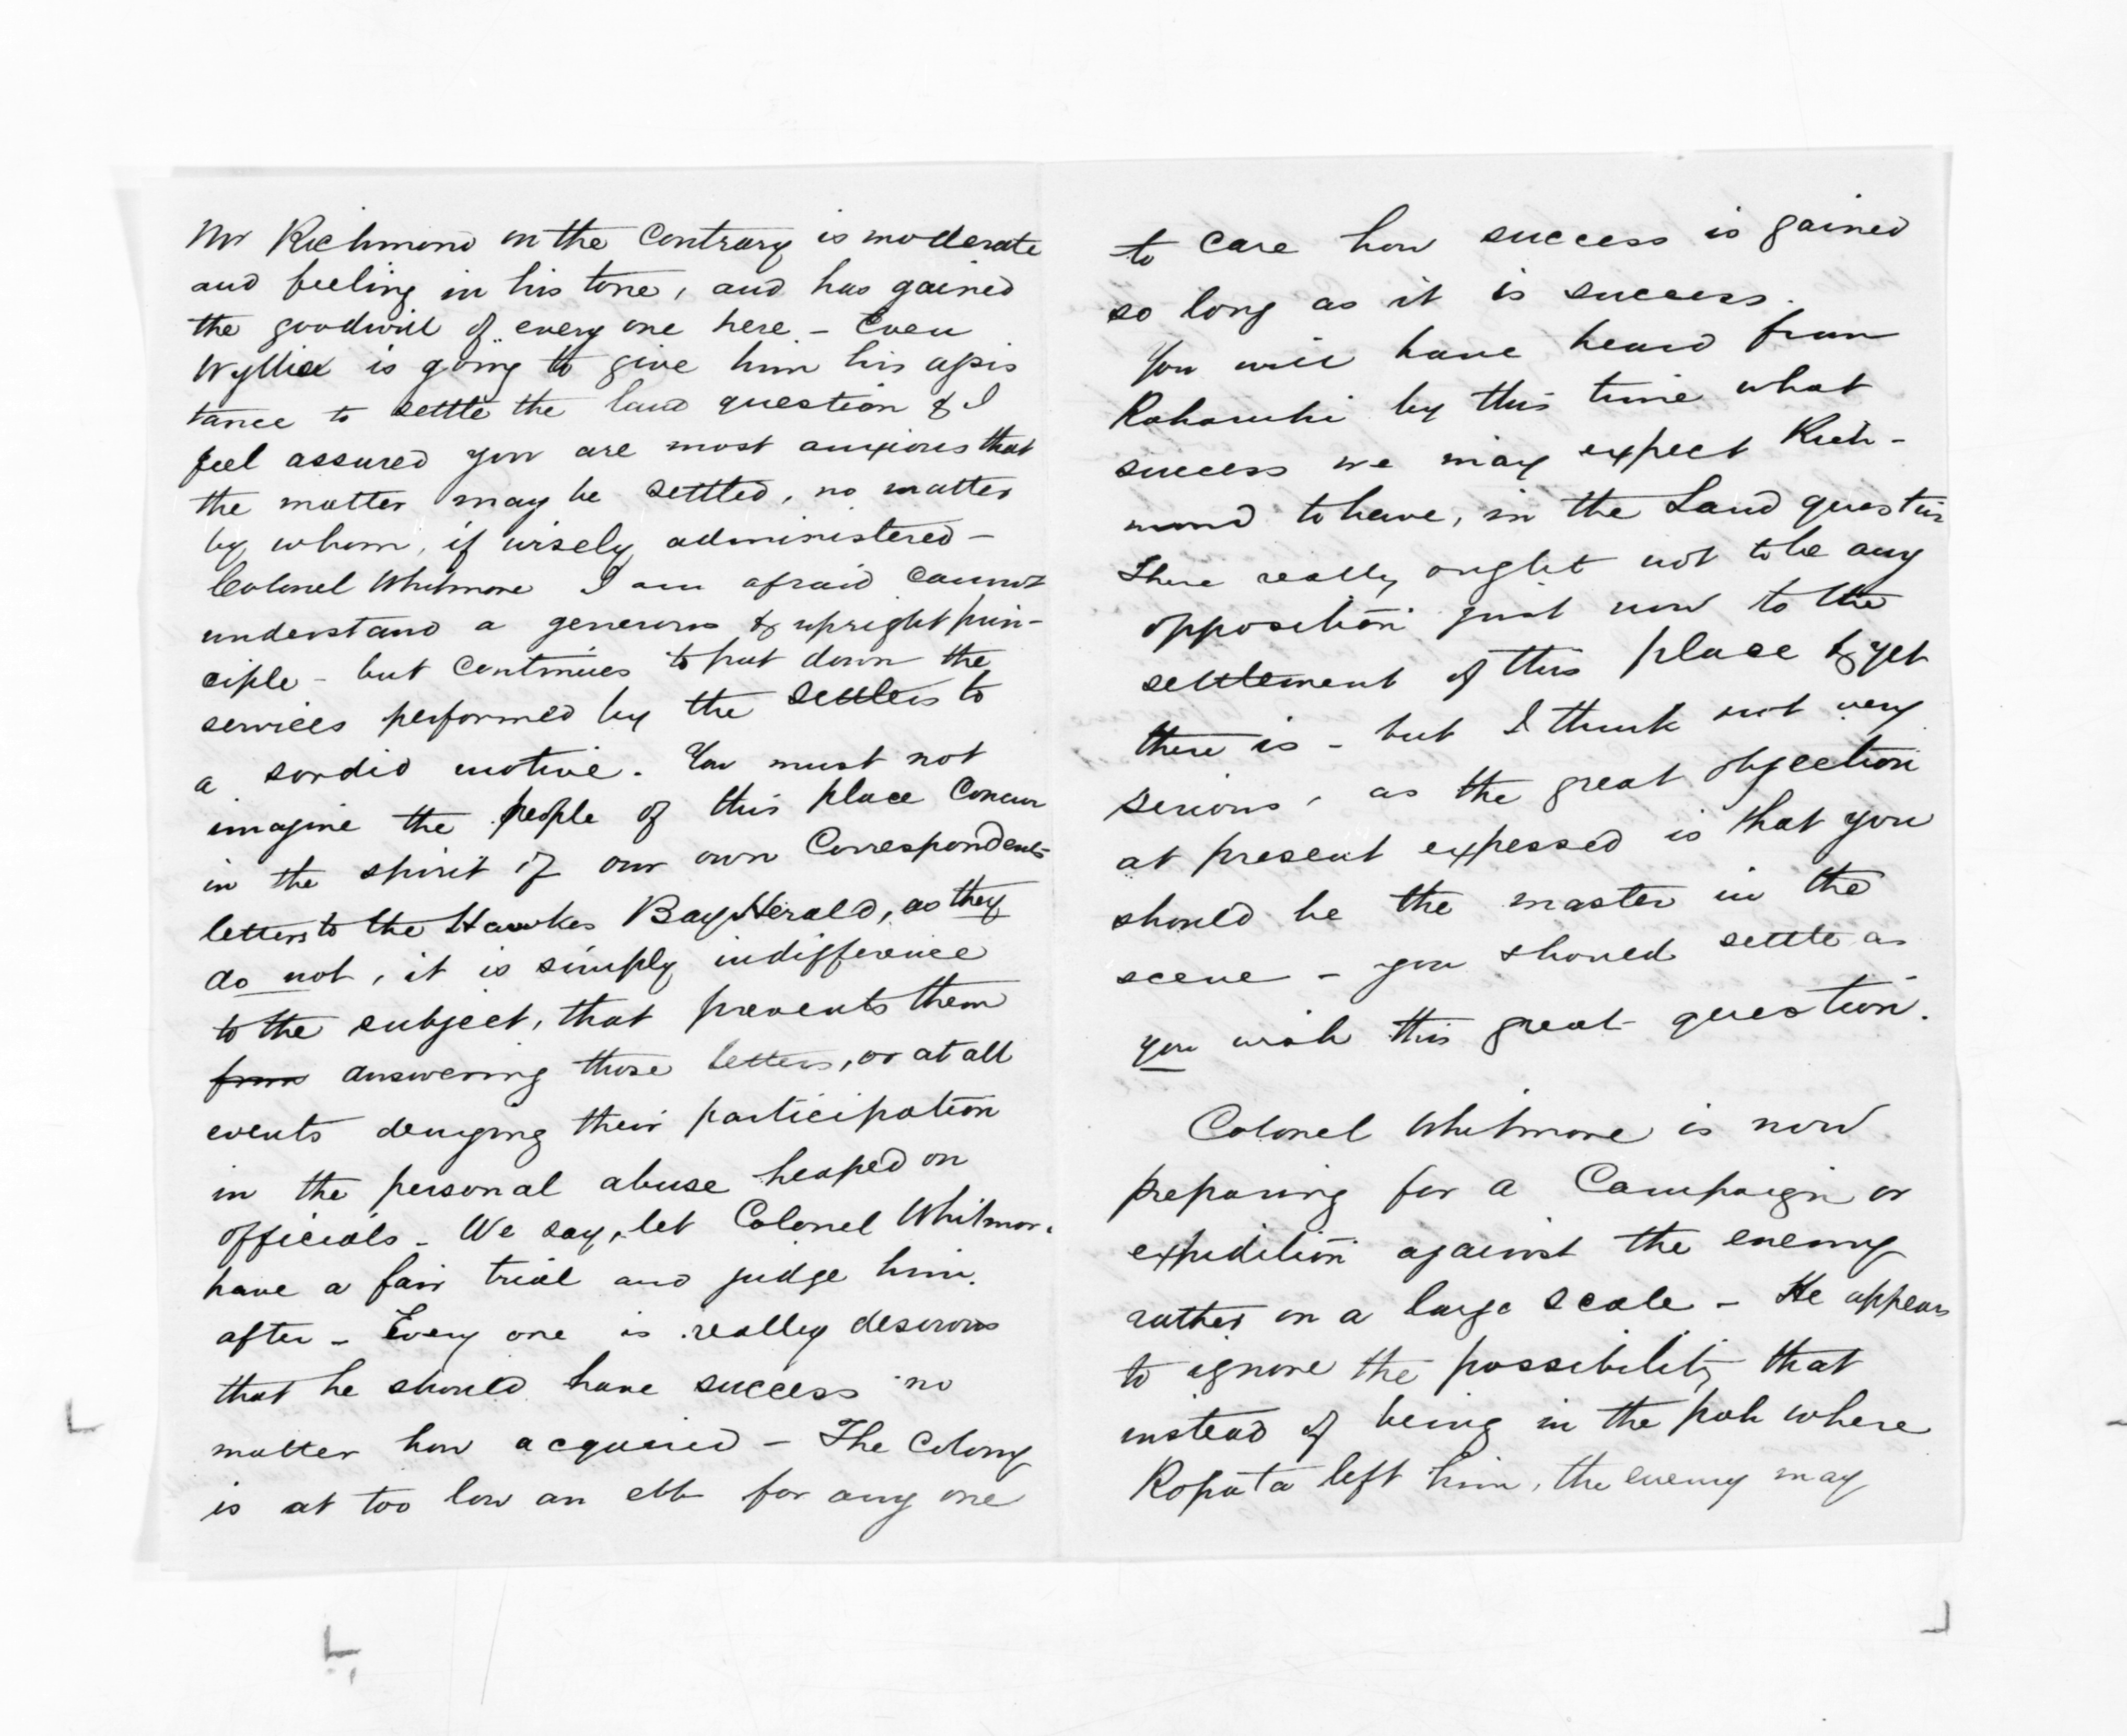 Mr Richmond on the Contrary is moderate
and feeling in his tone, and has gained
the goodwill of every one here - Even
Wyllie is going to give him his assis
tance to settle the land question & I
feel assured you are most anxious that
the matter may be settled, no matter
by whom, if wisely administered -
Colonel Whitmore I am afraid cannot
understand a generous & upright prin-
ciple - but Continues to put down the
services performed by the settlers to
a sordid motive. You must not
imagine the people of this place Concur
in the spirit of our own Correspondents
letters to the Hawkes Bay Herald, as they
do not, it is simply indifference
to the subject, that prevents them
from answering those letters, or at all
events denying their participation
in the personal abuse heaped on
officials - We say, let Colonel Whitmore
have a fair trial and judge him
after - Every one is really desirous
that he should have success no
matter how acquired - The Colony
is at too low an ebb for any one
to care how success is gained
so long as it is success.
You will have heard from
by this time what
success we may expect Rich-
mond to have, in the Land question
There really ought not to be any
opposition just now to the
settlement of this place & yet
there is - but I think not very
serious, as the great objection
at present expessed is that you
should be the master in the
scene - you should settle as
you wish this great question.
Colonel Whitmore is now
preparing for a Campaign or
expidition against the enemy
rather on a large scale - He appears
to ignore the possibility that
instead of being in the pah where
Ropata left him, the enemy may